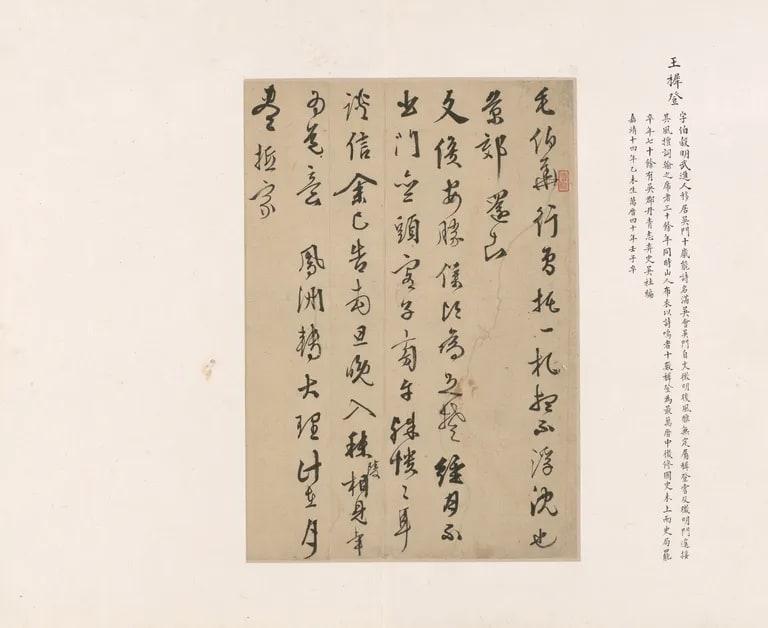 王穉登
字伯穀明武進人移居吳門十歲能詩名滿吳會吳門自文徵明後風雅無定屬穉登嘗及徵明門遙接
其風擅詞翰之席者三十餘年同時山人布衣以詩鳴者十數穉登為最萬曆中徵修國史未上而史局罷
卒年七十餘有吳郡丹青志弈史吳社編
嘉靖十四年乙未生萬曆四十年壬子卒
毛伯華行曾托一札想不浮沈也
景郊還知
文候安勝僕比為足楚經月不
出門
談信余已告南旦晚入秣陵相見幸
為道意 鳳洲轉大理計在月